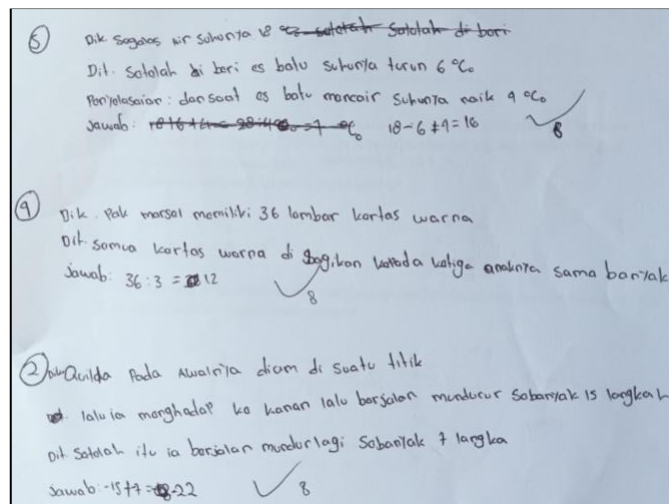 5 Dik Segelas air suhunya 18 °C setelah setelah di beri
Dit. Setelah di beri es batu suhunya turun 6 °C
Penyelesaian: dan saat es batu mencair suhunya naik 4 °C
Jawab: 18-6+4=16 8
4 Dik. Pak marsel memiliki 36 lembar kertas warna
Dit. Semua kertas warna di bagikan kepada ketiga anaknya sama banyak
Jawab: 36:3 = 12
8
2 Dik Quilda Pada Awalnya diam di suatu titik
lalu ia menghadap ke kanan lalu berjalan munducur sebanyak 15 langkah
Dit Setelah itu ia berjalan mundur lagi sebanyak 7 langka
Jawab: -15+7= -22 8